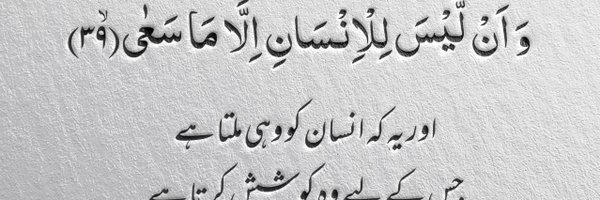 وَ اَنْ لَّیْسَ لِلْاِنْسَانِ اِلَّا مَا سَعٰی ﴿۳۹﴾
اور یہ کہ انسان کو وہی ملتا ہے
جس کے لیے وہ کوشش کرتا ہے